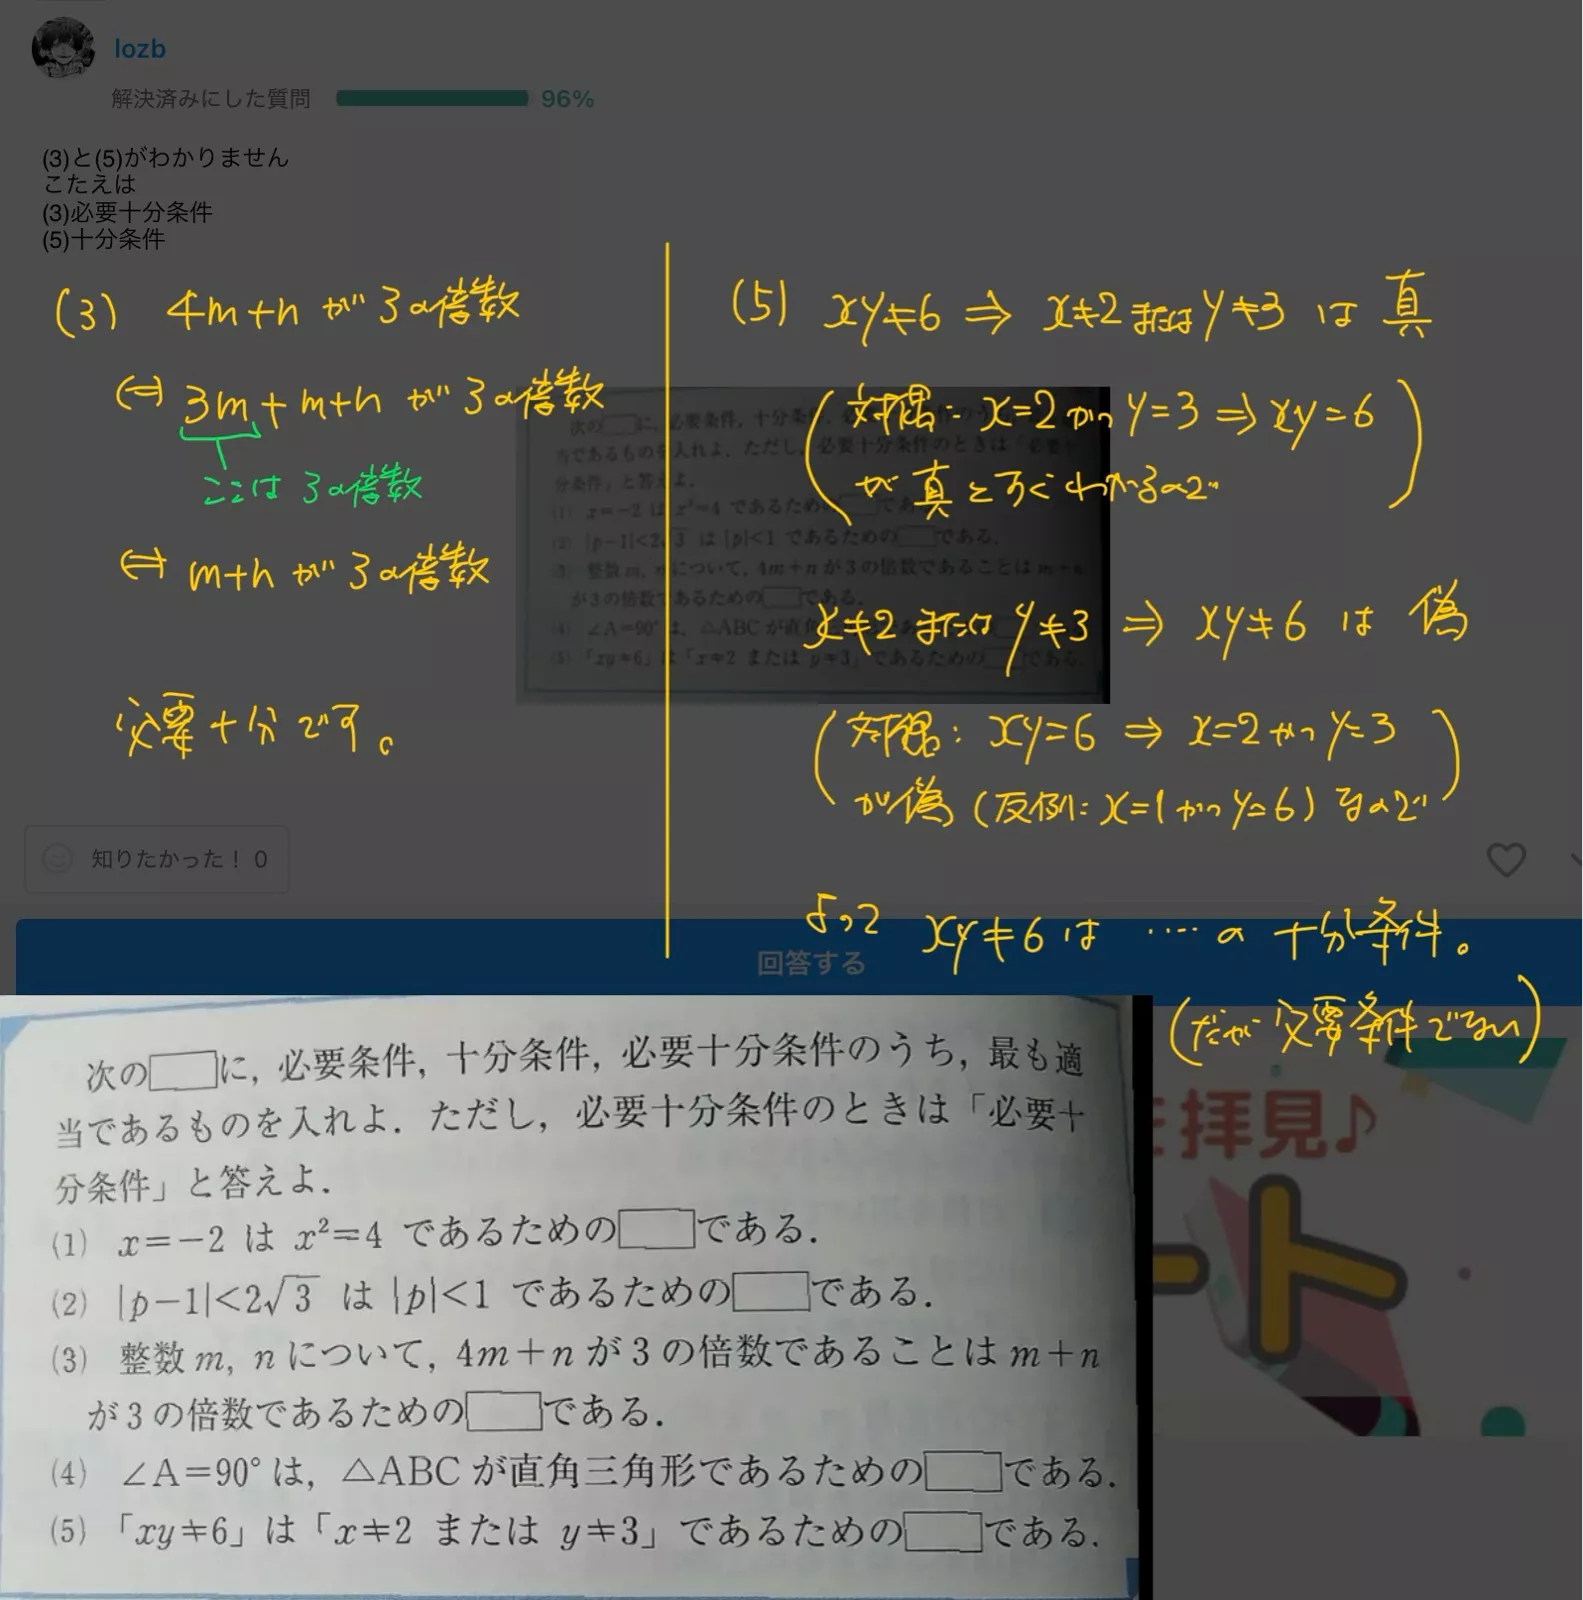 lozb
解決済みにした質問 96%
(3)と(5)がわかりません
こたえは
(3)必要十分条件
(5)十分条件
(3) 4m+n が 3の倍数
⇔ 3m+m+n が 3の倍数
ここは 3の倍数
⇔ m+n が 3の倍数
必要十分です。
(5) xy≠6 ⇒ x≠2 または y≠3 は 真
(対偶: x=2 かつ y=3 ⇒ xy=6
が 真 とすぐわかるので)
x≠2 または y≠3 ⇒ xy≠6 は 偽
(対偶: xy=6 ⇒ x=2 かつ y=3
が偽 (反例: x=1 かつ y=6) なので)
よって xy≠6 は ‥‥ の 十分条件。
(だが 必要条件でない)
知りたかった！ 0
回答する
を拝見♪
ート
次の□に, 必要条件, 十分条件, 必要十分条件のうち, 最も適
当であるものを入れよ. ただし, 必要十分条件のときは「必要十
分条件」と答えよ.
(1) x=-2 は x²=4 であるための□である.
(2) |p-1|<2√3 は |p|<1 であるための□である.
(3) 整数 m, n について, 4m+n が 3 の倍数であることは m+n
が 3 の倍数であるための□である.
(4) ∠A=90° は, △ABC が直角三角形であるための□である.
(5) 「xy≠6」は「x≠2 または y≠3」であるための□である.